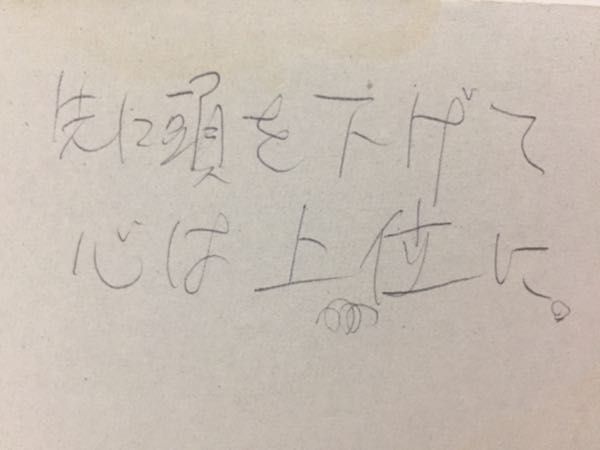 先に頭を下げて
心は上位に。